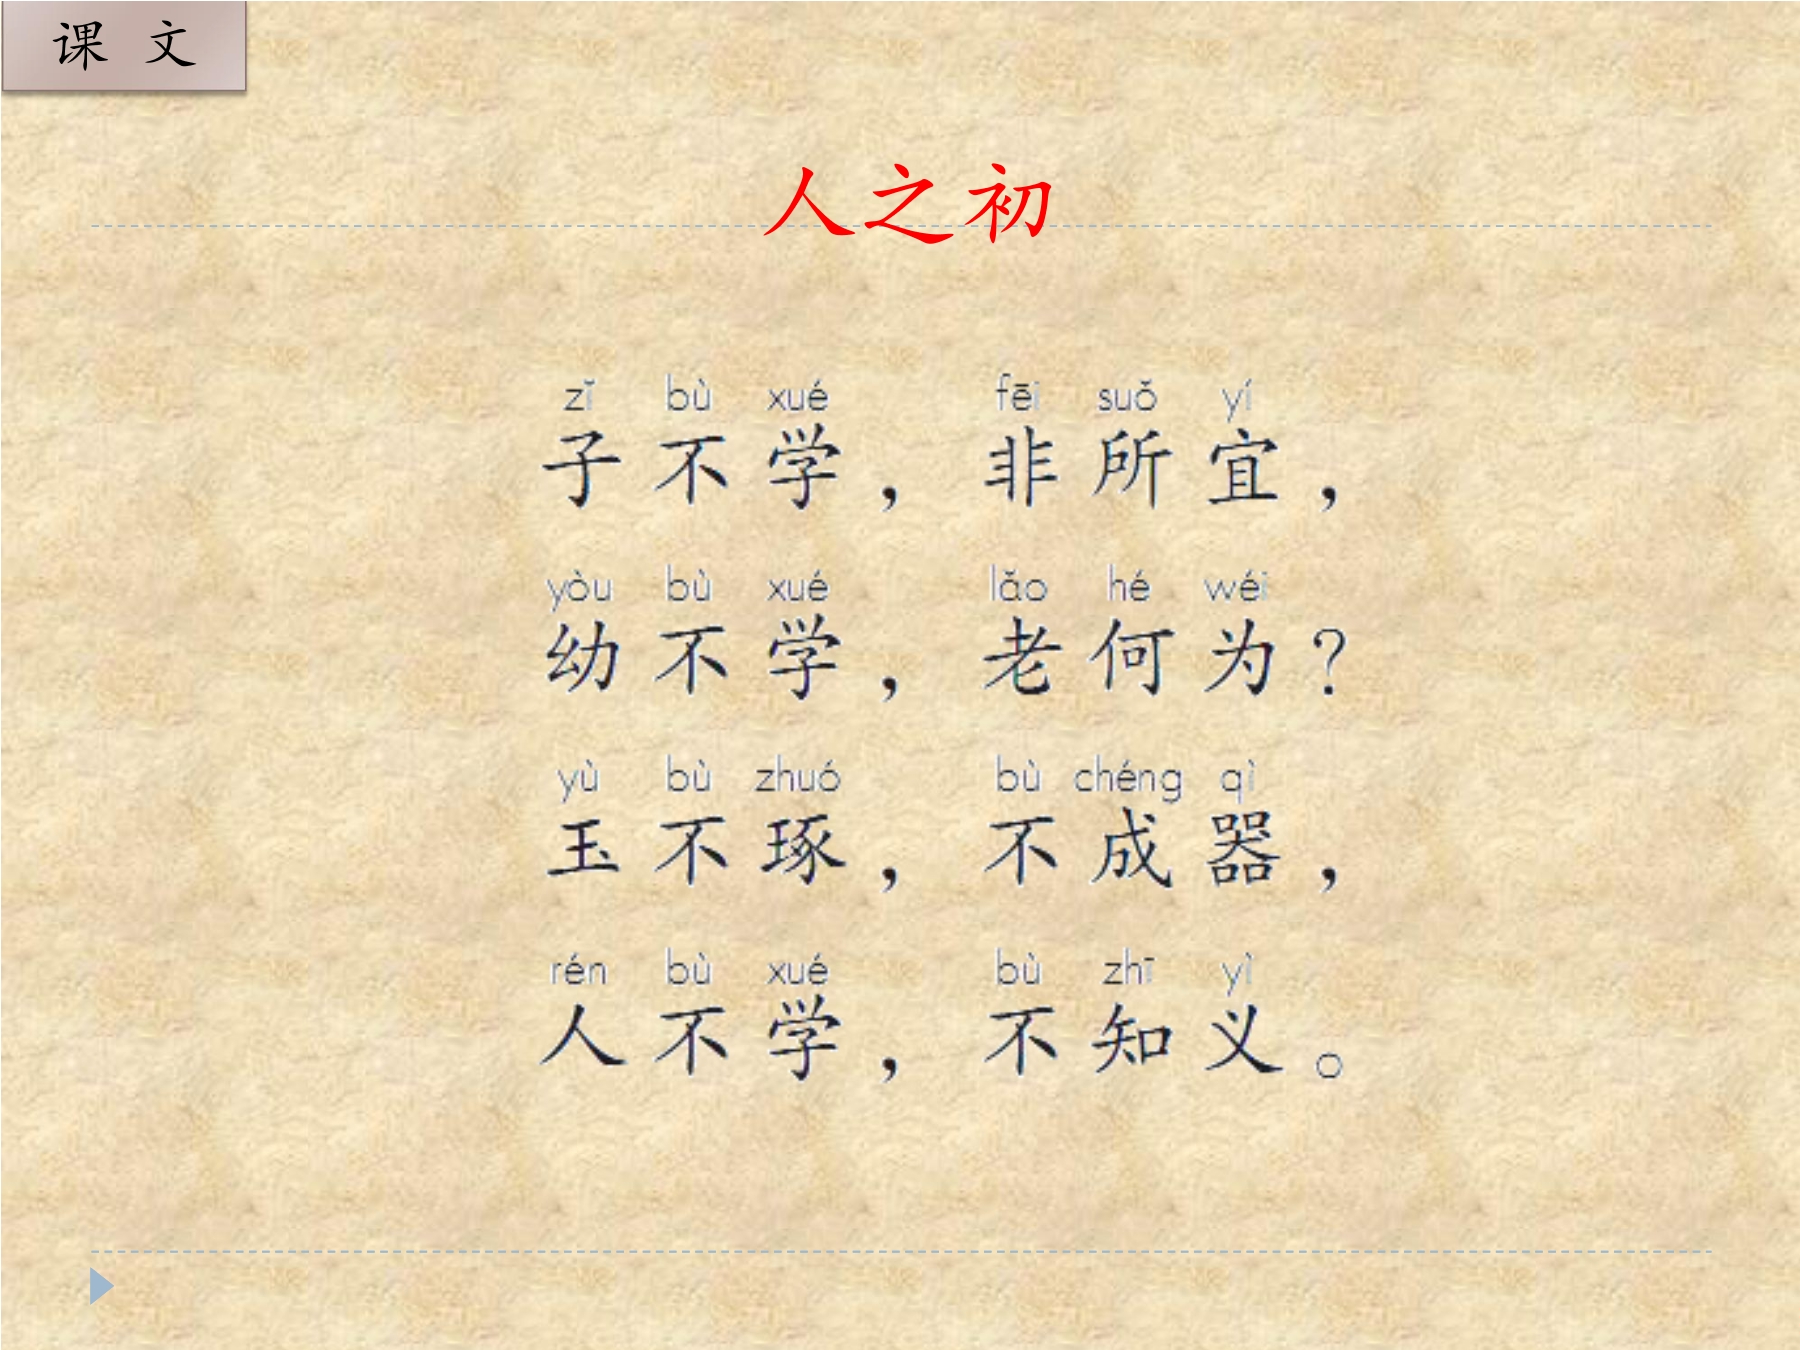 课 文
人之初
zǐ bù xué fēi suǒ yí
子不学，非所宜，
yòu bù xué lǎo hé wéi
幼不学，老何为？
yù bù zhuó bù chéng qì
玉不琢，不成器，
rén bù xué bù zhī yì
人不学，不知义。